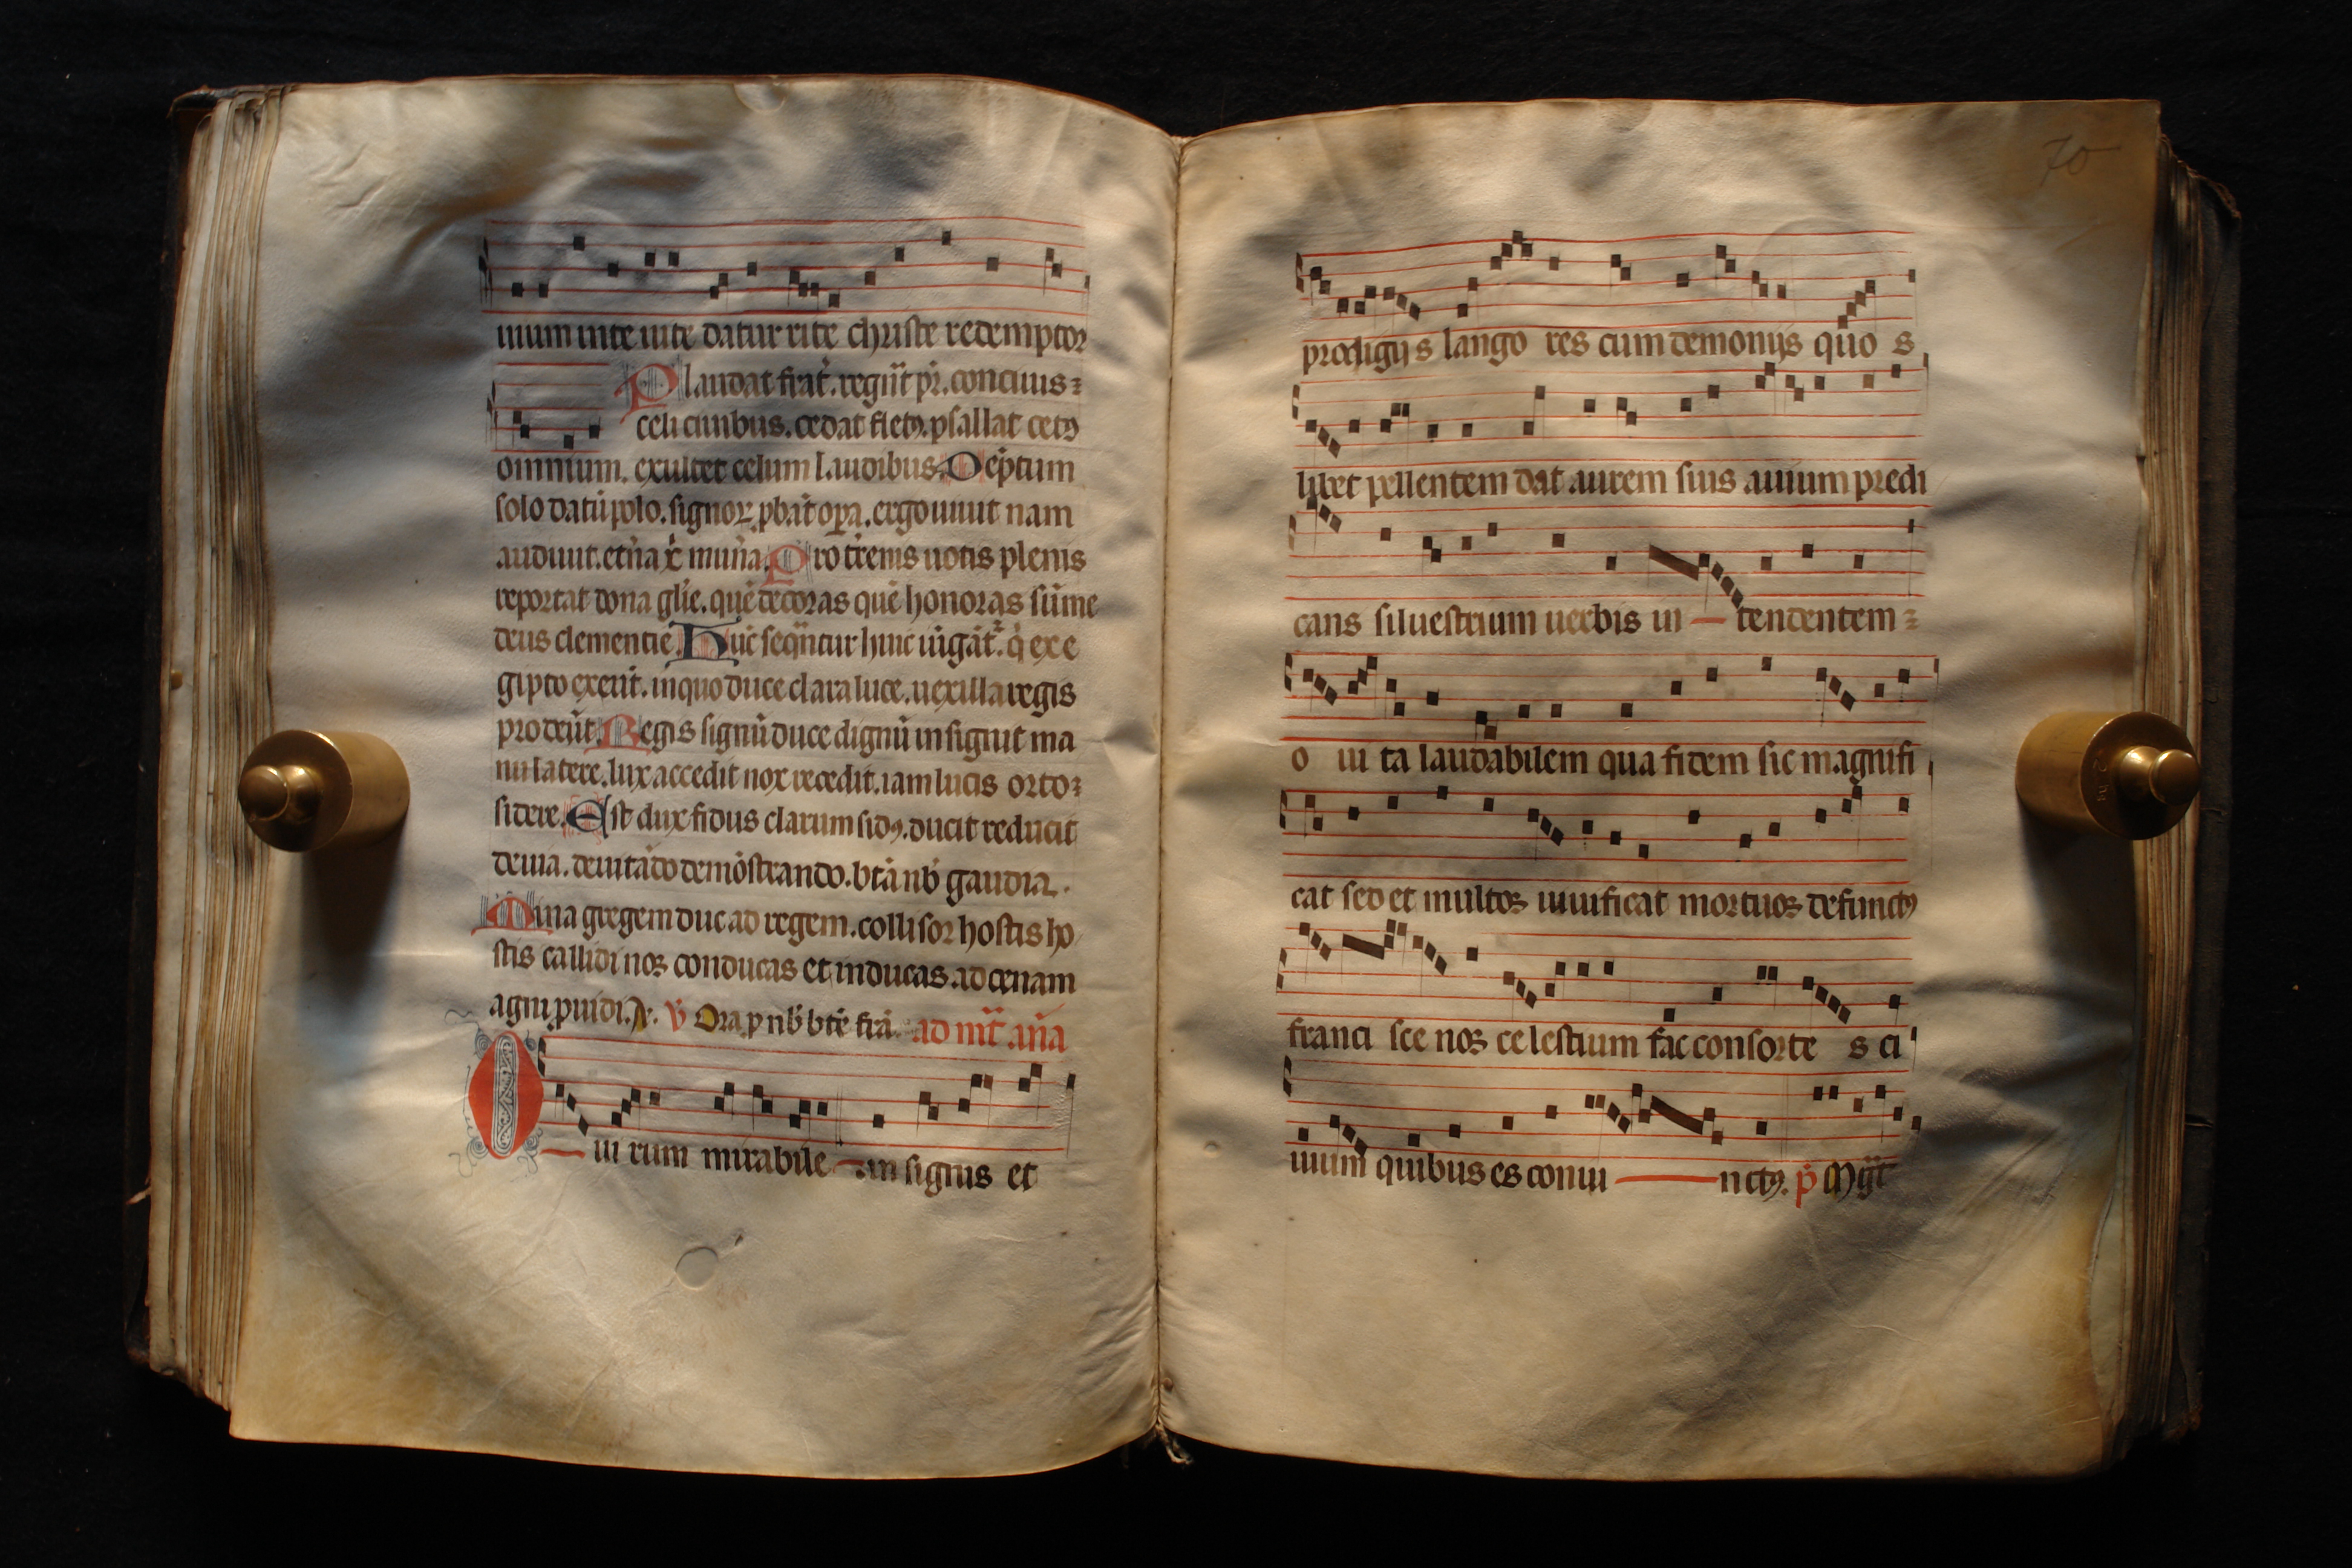 uium uite datur rite christe redemptor
Plaudat frat̄. regn̄t pr̄. conciuis
celi ciuibus. cedat fletꝯ. psallat cetꝯ
omnium. exultet celum laudibus. Deptum
solo datū polo. signoꝝ ꝓbāt oꝑa. ergo uiuit nam
audiuit. et̄na x̄ mun̄a. Pro t̄renis uotis plenis
reportat dona gl̄ie. quē decoras quē honoras sūme
deus clementie. Hūc seqūntur huic iūgāt᷑. q̄ ex e
gipto exeūt. in quo duce clara luce. uexilla regis
prodeūt. Regis signū duce dignū insignit ma
nu latere. lux accedit nox recedit. iam lucis orto
sidere. Est dux fidus clarum sidꝯ. ducit reducit
deuia. deuitādo demōstrando. btā nb̄ gaudia.
Mina gregem duc ad regem. collisor hostis ho
stis callidi nos conducas et inducas. ad cenam
agni ꝓuidi. A. V̄ Ora ꝓ nb̄ btē frā. ad m̄t an̄a
O ui rum mirabile in signis et
70
prodigijs lango res cum demonijs quo s
libet pellentem dat aurem suis auium predi
cans siluestrium uerbis in tendentem
o ui ta laudabilem qua fidem sic magnifi
cat sed et multos uiuificat mortuos defunctꝯ
franci sce nos celestium fac consorte s ci
uium quibus es coniu nctꝯ. p̄ Mḡt